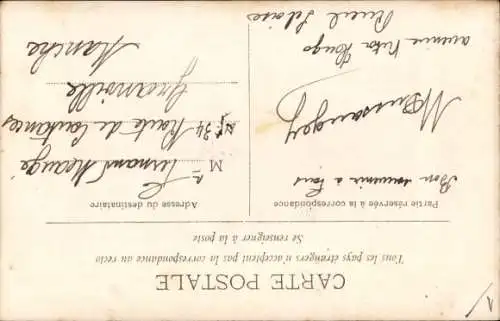 CARTE POSTALE
Tous les pays étrangers n'acceptent pas la correspondance au recto
Se renseigner à la poste
Partie réservée à la correspondance
Bon souvenir à tous
avenue Victor Hugo
Rueil
Adresse du destinataire
M
Fernand
N° 34 Route de Coutances
Granville
Manche